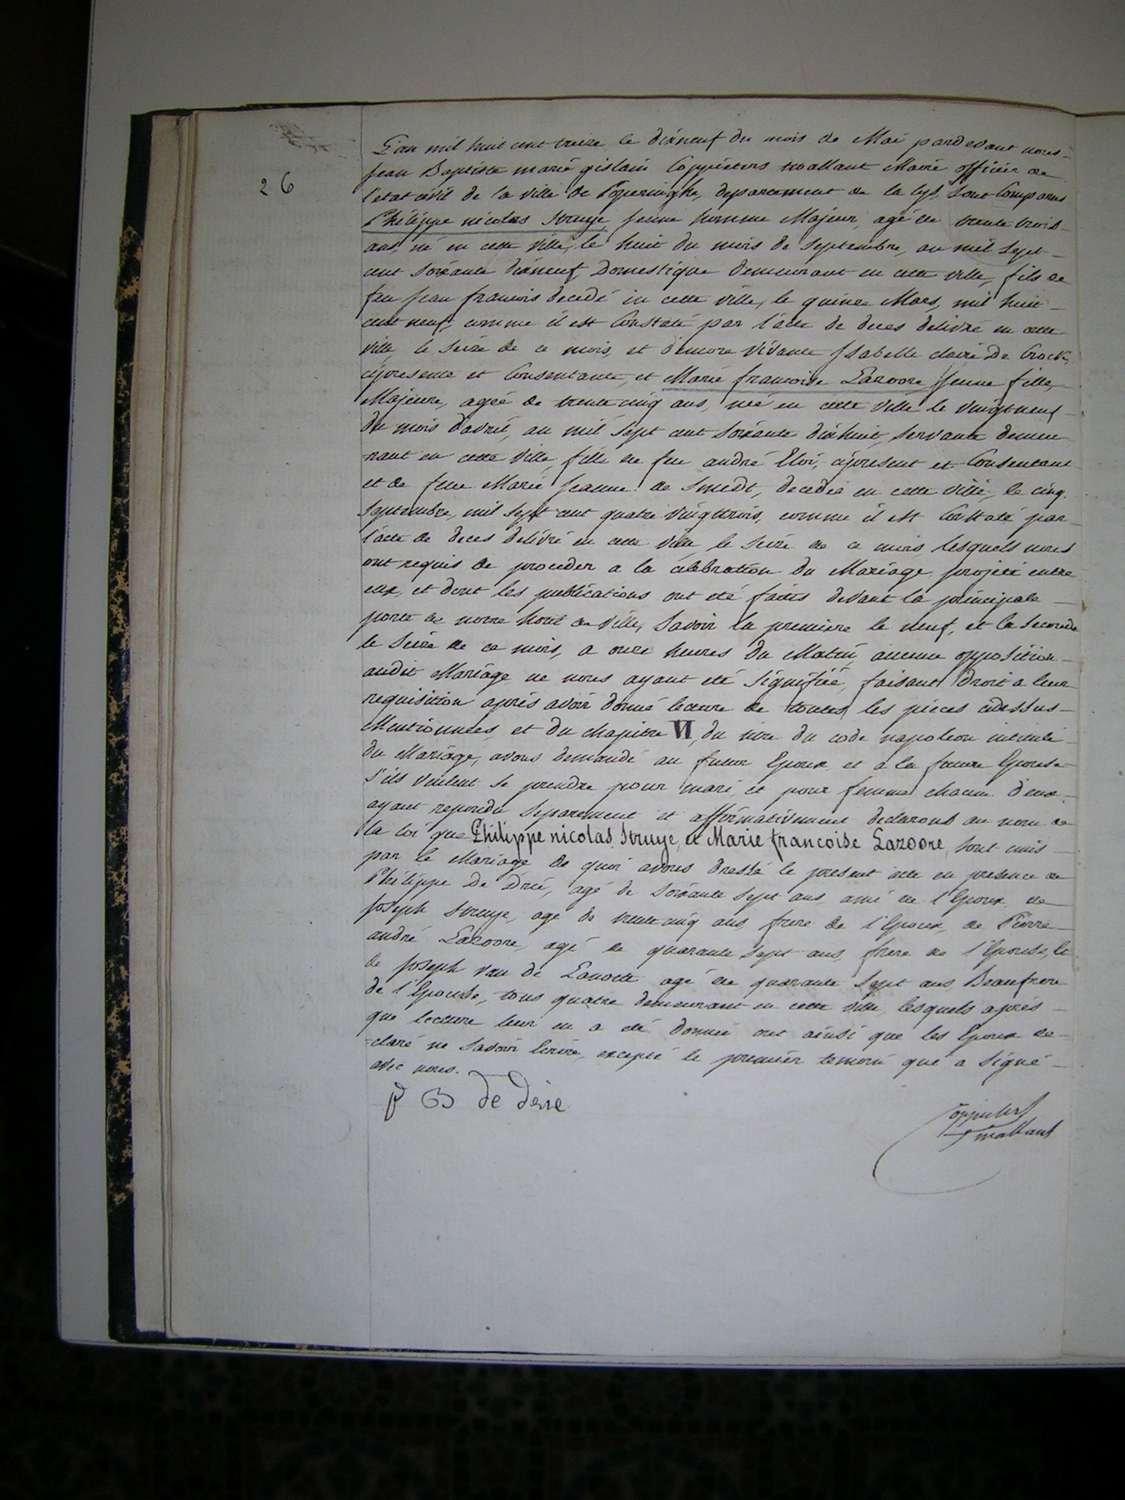 L'an mil huit cent treize le dixneuf du mois de Mai pardevant nous
Jean Baptiste marie gislain Coppieters wallant Maire officier de
26
l'etat civil de la ville de Poperinghe, departement de la Lys, sont Comparus
Philippe nicolas Struye jeune homme Majeur, agé de trente trois
ans, né en cette ville, le huit du mois de Septembre, an mil Sept
cent Soixante dixneuf, Domestique demeurant en cette ville, fils de
feu jean francois decedé in cette ville, le quinze Mars, mil huit
cent neuf comme il est Constaté par l'acte de deces delivré en cette
ville le Seize de ce mois, et d'encore Vivante Isabelle claire De Crock,
cipresente et Consentante, et Marie francoise Lazoore, jeune fille
Majeure, ageé de trente cinq ans, neé en cette ville le vingt neuf
du mois d'avril, an mil Sept cent Soixante dixhuit, Servante demeu
rant en cette ville, fille de feu andré Eloi, cipresent et Consentant
et de feue Marie Jeanne de Smedt, decedeé en cette ville, le cinq
Septembre, mil Sept cent quatre vingt trois, comme il est Constaté par
l'acte de deces delivré en cette ville le Seize de ce mois, lesquels nous
ont requis de proceder a la celebration du Mariage projeté entre
eux, et dont les publications ont eté faites devant la principale
porte de notre hotel de Ville, Savoir la premiere le neuf, et la Seconde
le Seize de ce mois, a onze heures du Matin aucune opposition
audit Mariage ne nous ayant eté Signifiée, faisant droit a leur
requisition après avoir donné lecture de toutes les pièces cidessus
Mentionnées, et du chapitre VI, du titre du code napoleon intitulé
du Mariage, avons demandé au futur Epoux et a la future Epouse
s'ils veulent se prendre pour mari, et pour femme chacun d'eux
ayant repondu Separement et affirmativement declarons au nom de
la loi que Philippe nicolas Struye, et Marie francoise Lazoore, sont unis
par le Mariage de quoi avons dressé le present acte en presence de
Philippe De Drie, agé de Soixante Sept ans ami de l'Epoux, de
Joseph Struye, agé de trente cinq ans frere de l'Epoux, de Pierre
andré Lazoore, agé de quarante Sept ans frere de l'Epouse, et
de Joseph van de Lanotte agé de quarante Sept ans Beaufrere
de l'Epouse, tous quatre demeurant en cette ville lesquels après
que lecture leur en a eté donnée ont ainsi que les Epoux de
claré ne Savoir Ecrire, excepté le premier temoin que a Signé
avec nous.
P B de drie
Coppieters
wallant